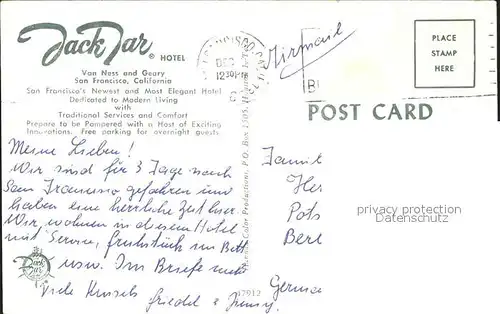 Jack Tar
® HOTEL
Van Ness and Geary
San Francisco, California
San Francisco's Newest and Most Elegant Hotel
Dedicated to Modern Living
with
Traditional Services and Comfort
Prepare to be Pampered with a Host of Exciting
Innovations. Free parking for overnight guests.
DEC
12 30
Airmail
PLACE
STAMP
HERE
POST CARD
Meine Lieben!
Wir sind für 3 Tage nach
San Francisco gefahren und
haben eine herrliche Zeit hier.
Wir wohnen in diesem Hotel
mit Service, frühstück im Bett
usw. Im Briefe mehr
Viele Kussels friedel &
Color Productions, P.O. Box 1505,
47912
Famil
Her
Pots
Berl
Germa
privacy protection
Datenschutz